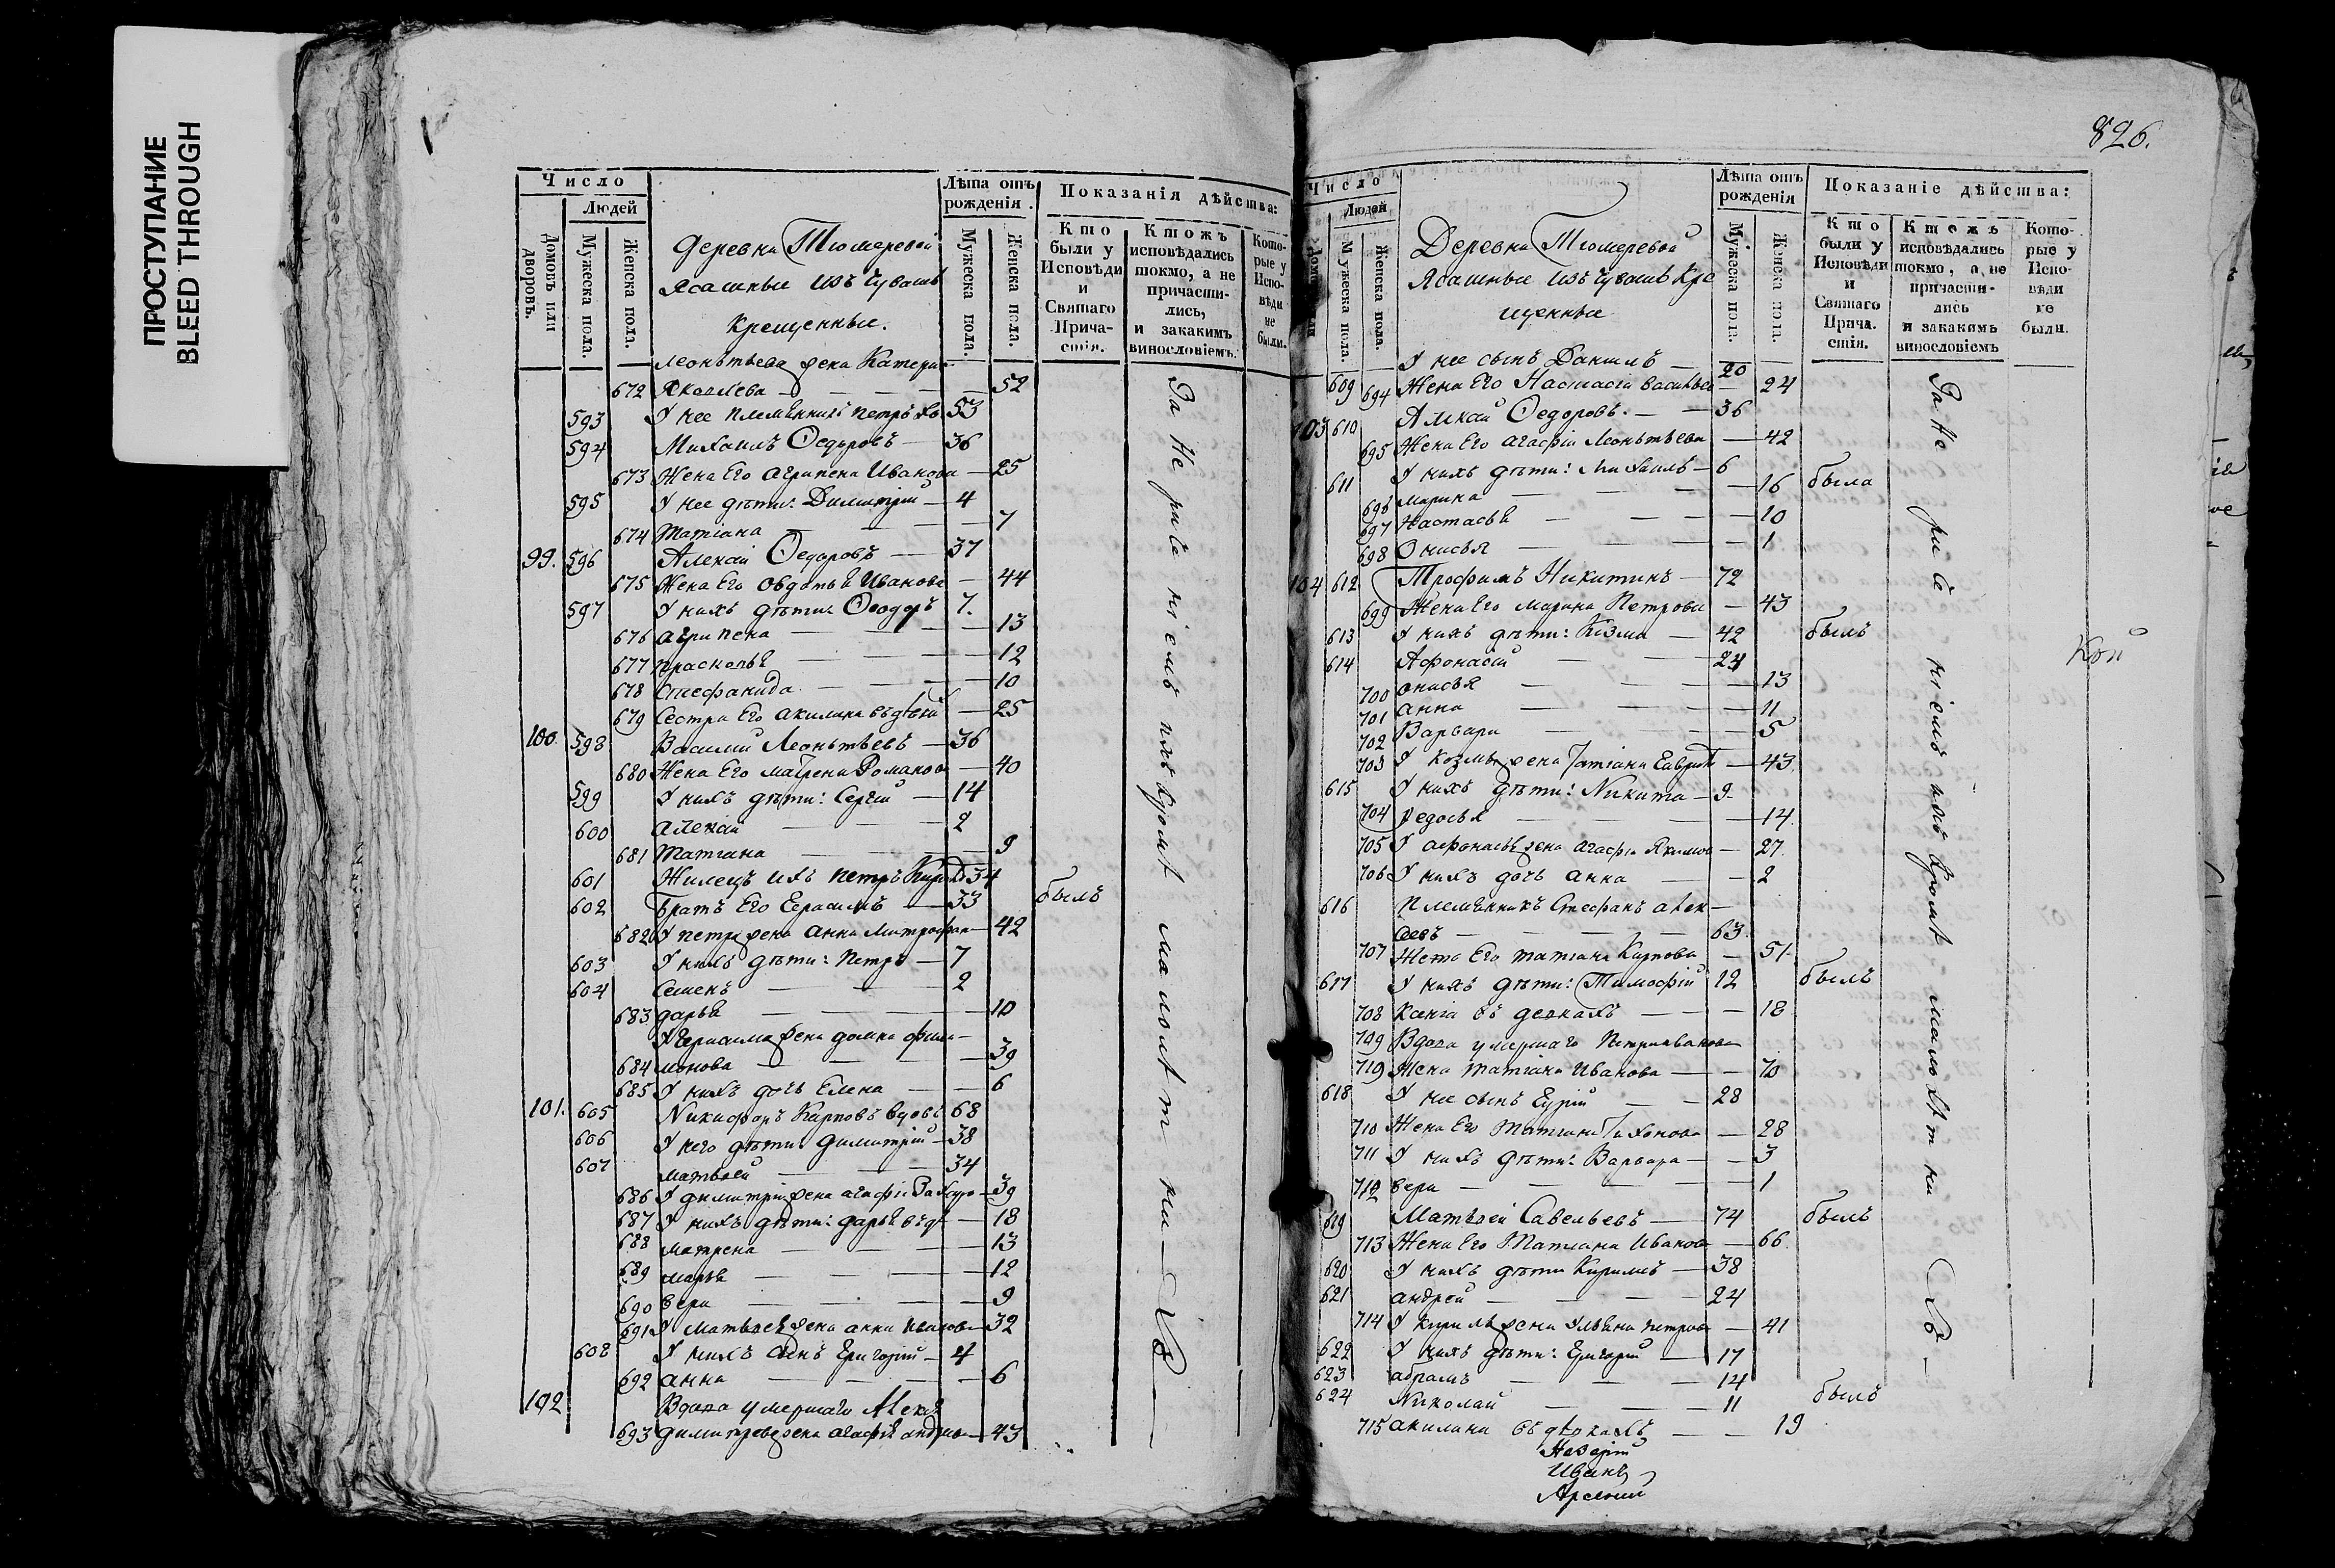 ПРОСТУПАНИЕ
BLEED THROUGH
826.
Число
Людей
Домовъ или дворовъ.
Мужеска пола.
Женска пола.
Деревни Тюмеревой
Ясашные изъ Чувашъ
Крещенные.
Лѣта отъ рожденія.
Мужеска пола.
Женска пола.
Показанія дѣйства:
Кто были у Исповѣди и Святаго Причастія.
Ктожъ исповѣдались токмо, а не причастились, и закакимъ винословіемъ.
Которые у Исповѣди не были.
Леонтьева жена Катери-
672 Яковлева — 52
593 У нее племянникъ Петръ 53
594 Михаилъ Ѳедоровъ — 36
673 Жена Его Агрипена Иванова — 25
595 У нее дѣти: Димитрій — 4
674 Татіана — 7
99. 596 Алексѣй Ѳедоровъ — 37
675 Жена Его Овдотья Иванова — 44
597 У нихъ дѣти: Ѳеодоръ 7.
676 Агрипена — 13
677 Прасковья — 12
678 Стефанида — 10
679 Сестра Его Акилина въ дѣвка — 25
100. 598 Василий Леонтьевъ — 36
680 Жена Его Матрена Романов — 40
599 У нихъ дѣти: Сергій — 14
600 Алексѣй — 2
681 Татіана — 9
601 Жилецъ ихъ Петръ 34
602 Братъ Его Герасимъ — 33 былъ
682 У Петра жена Анна Митрофан — 42
603 У нихъ дѣти: Петръ — 7
604 Семенъ — 2
683 Дарья — 10
У Герасима жена Домна Фили-
684 монова — 39
685 У нихъ дочь Елена — 6
101. 605 Никифоръ Карповъ вдовъ 68
606 У него дѣти Димитрій — 38
607 Матвѣй — 34
686 У Димитрія жена Агафія Захаро — 39
687 У нихъ дѣти: Дарья въ дѣ — 18
688 Матрена — 13
689 Марья — 12
690 Вера — 9
691 У Матвѣя жена Анна Иванов — 32
608 У нихъ сынъ Григорій — 4
692 Анна — 6
102 Вдова умершаго Алексѣ
693 Димитрева жена Агафья Андреев — 43
Число
Людей
Мужеска пола.
Женска пола.
Деревни Тюмеревой
Ясашные изъ Чувашъ Кре
щенные
Лѣта отъ рожденія
Мужеска пола.
Женска пола.
Показаніе дѣйства:
Кто были у Исповѣди и Святаго Причастія.
Ктожъ исповѣдались токмо, а не причастились и закакимъ винословіемъ
Которые у Исповѣди не были.
609 У нее сынъ Данилъ — 20
694 Жена Его Настасія Васильев — 24
103 610 Алексѣй Ѳедоровъ. — 36
695 Жена Его Агафія Леонтьева — 42
611 У нихъ дѣти: Михаилъ — 6
696 Марина — 16 была
697 Настасья — 10
698 Онисья — 1
104 612 Трофимъ Никитинъ — 72
699 Жена Его Марина Петрова — 43
613 У нихъ дѣти: Козма — 42 былъ
614 Афонасій — 24
700 Онисья — 13
701 Анна — 11
702 Варвара — 5
703 У Козмы жена Татіана Гаврил — 43
615 У нихъ дѣти: Никита — 9
704 Ѳедосья — 14.
705 У Афонасья жена Агафія Якимов — 27.
706 У нихъ дочь Анна — 2
616 Племянникъ Стефанъ Алек-
сѣевъ — 63
707 Жена Его Татіана Карпова — 51
617 У нихъ дѣти: Тимофій 12 былъ
708 Ксенія въ девкахъ — 18
709 Вдова умершаго Петра Иванова
719 Жена Татіана Иванова — 70
618 У нее сынъ Гурій — 28
710 Жена Его Татіана Тихонова — 28
711 У нихъ дѣти: Варвара — 3
712 Вера — 1
619 Матвей Савельевъ — 74 былъ
713 Жена Его Татіана Иванов — 66
620 У нихъ дѣти Кирилъ — 38
621 Андрей — 24
714 У Кирилы жена Ульяна Петров — 41
622 У нихъ дѣти: Григорій — 17
623 Абрамъ — 14
624 Николай — 11 былъ
715 Акилина въ дѣвкахъ — 19
Иванъ